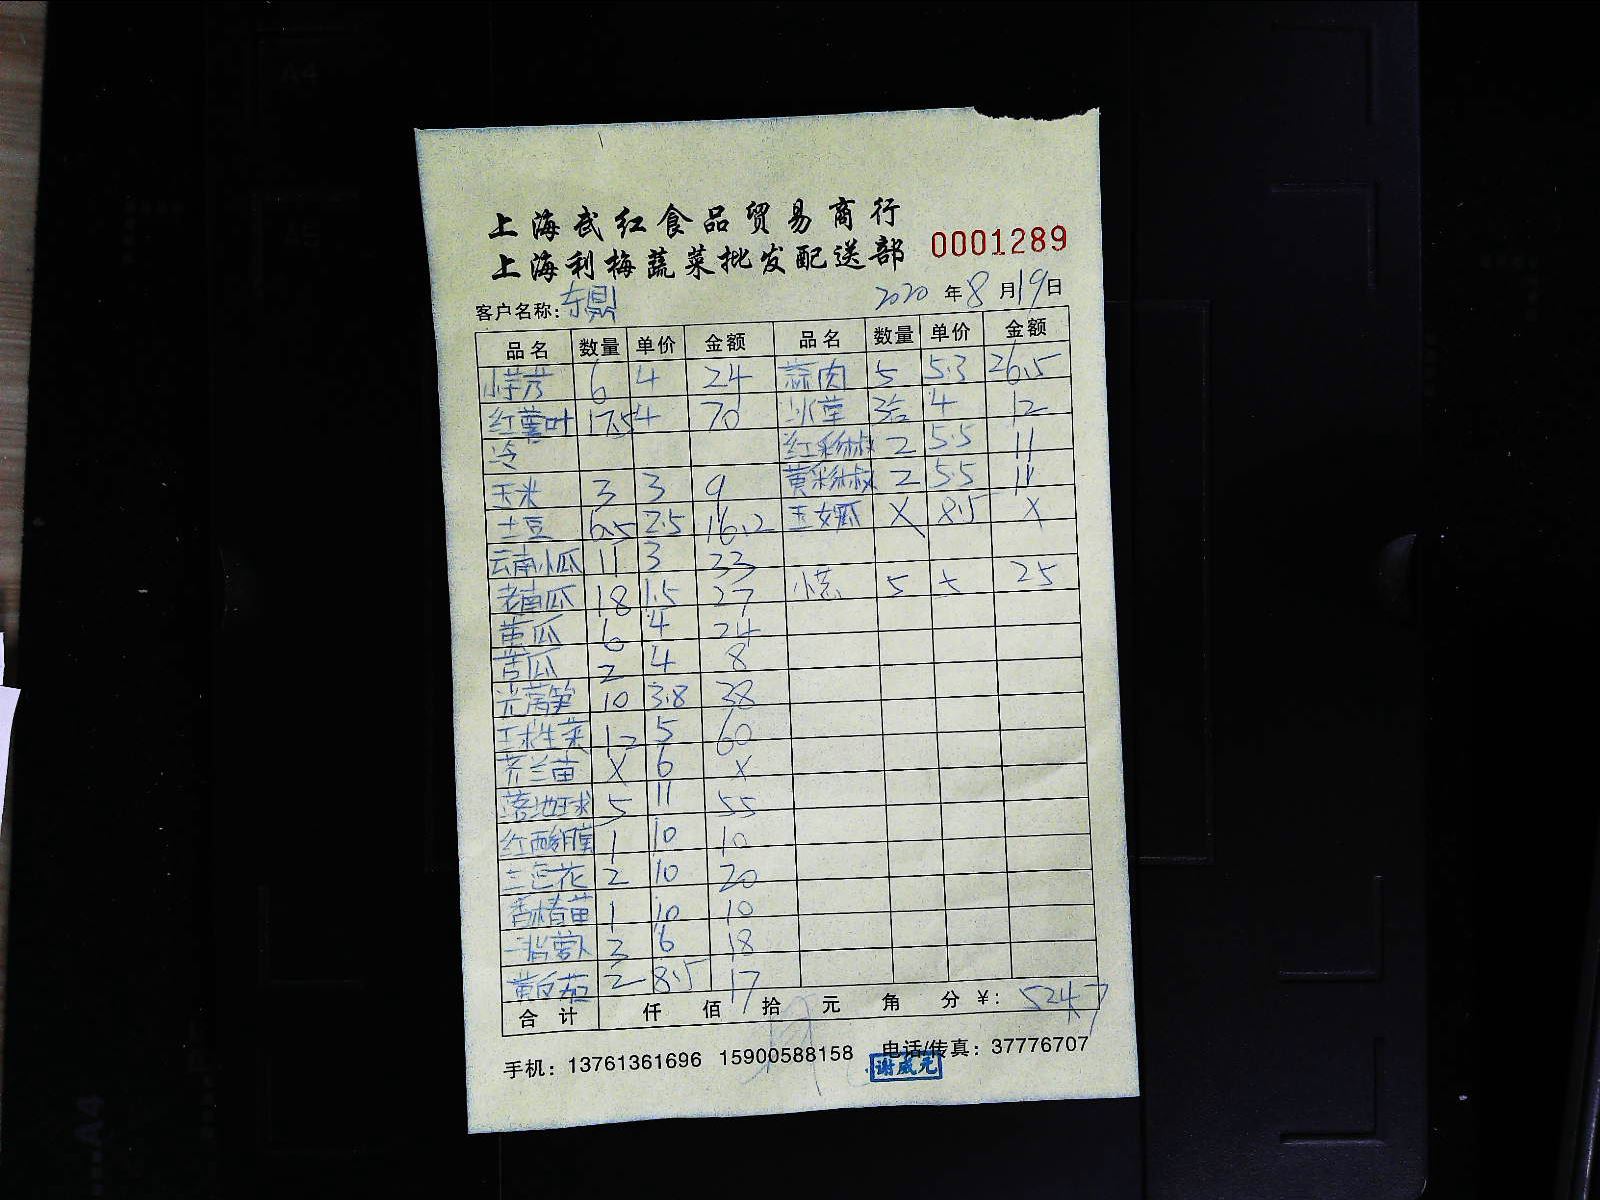 上海武红食品贸易商行
上海利梅蔬菜批发配送部
0001289
客户名称: 东鼎 2020 年 8 月 19 日
品名 数量 单价 金额 品名 数量 单价 金额
小芋艿 6 4 24 蒜肉 5 5.3 26.5
红薯叶 17.5 4 70 冰草 3 4 12
冷 红彩椒 2 5.5 11
玉米 3 3 9 黄彩椒 2 5.5 11
土豆 6.5 2.5 16.2 玉女瓜 X 8.5 X
云南小瓜 11 3 33
老南瓜 18 1.5 27 5 5 25
黄瓜 6 4 24
苦瓜 2 4 8
光莴笋 10 3.8 38
玉球生菜 12 5 60
芥兰苗 X 6 X
落地球 5 11 55
红酸膜 1 10 10
三色花 2 10 20
香椿苗 1 10 10
萝卜 3 6 18
黄西茄 2 8.5 17
合计 仟 佰 拾 元 角 分 ¥: 524.7
手机: 13761361696 15900588158 电话/传真: 37776707
谢威元